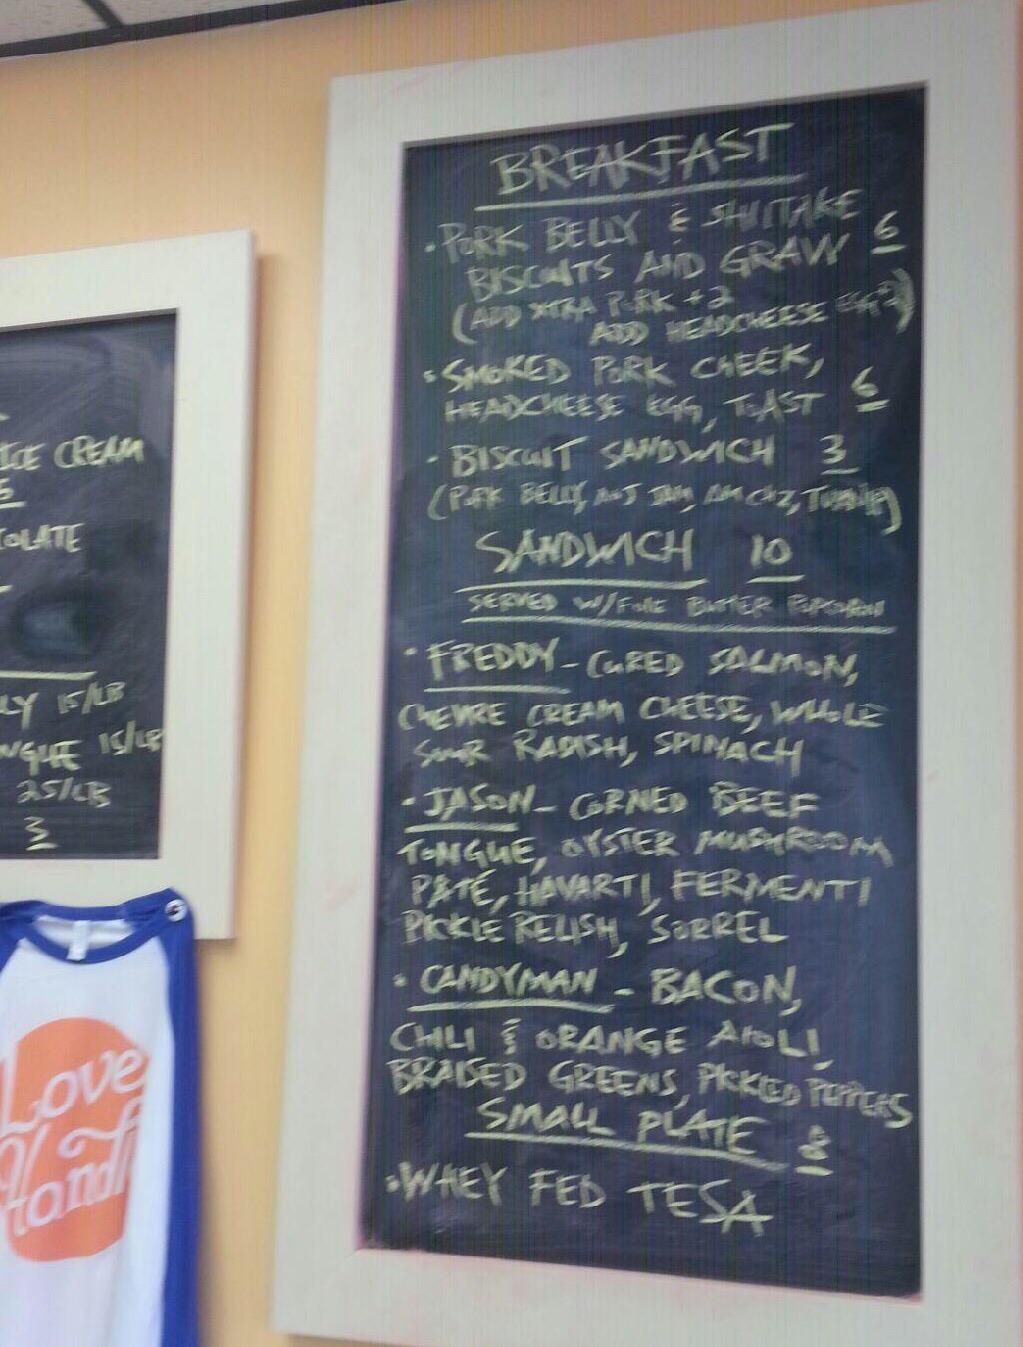 BREAKFAST
• PORK BELLY & SHIITAKE
BISCUITS AND GRAVY 6
(ADD XTRA PORK +2
ADD HEADCHEESE EGG 2)
• SMOKED PORK CHEEK,
HEADCHEESE EGG, TOAST 6
• BISCUIT SANDWICH 3
(PORK BELLY, JAM,
SANDWICH 10
SERVED W/ BUTTER POPCORN
• FREDDY - CURED SALMON,
CHEVRE CREAM CHEESE, WHOLE
SOUR RADISH, SPINACH
• JASON - CORNED BEEF
TONGUE, OYSTER MUSHROOM
PATÉ, HAVARTI, FERMENTI
PICKLE RELISH, SORREL
• CANDYMAN - BACON,
CHILI & ORANGE AIOLI,
BRAISED GREENS, PICKLED PEPPERS
SMALL PLATE 8
• WHEY FED TESA
ICE CREAM
5
OLATE
LY 15/LB
NGUE 15/LB
25/LB
3
Love
Handl